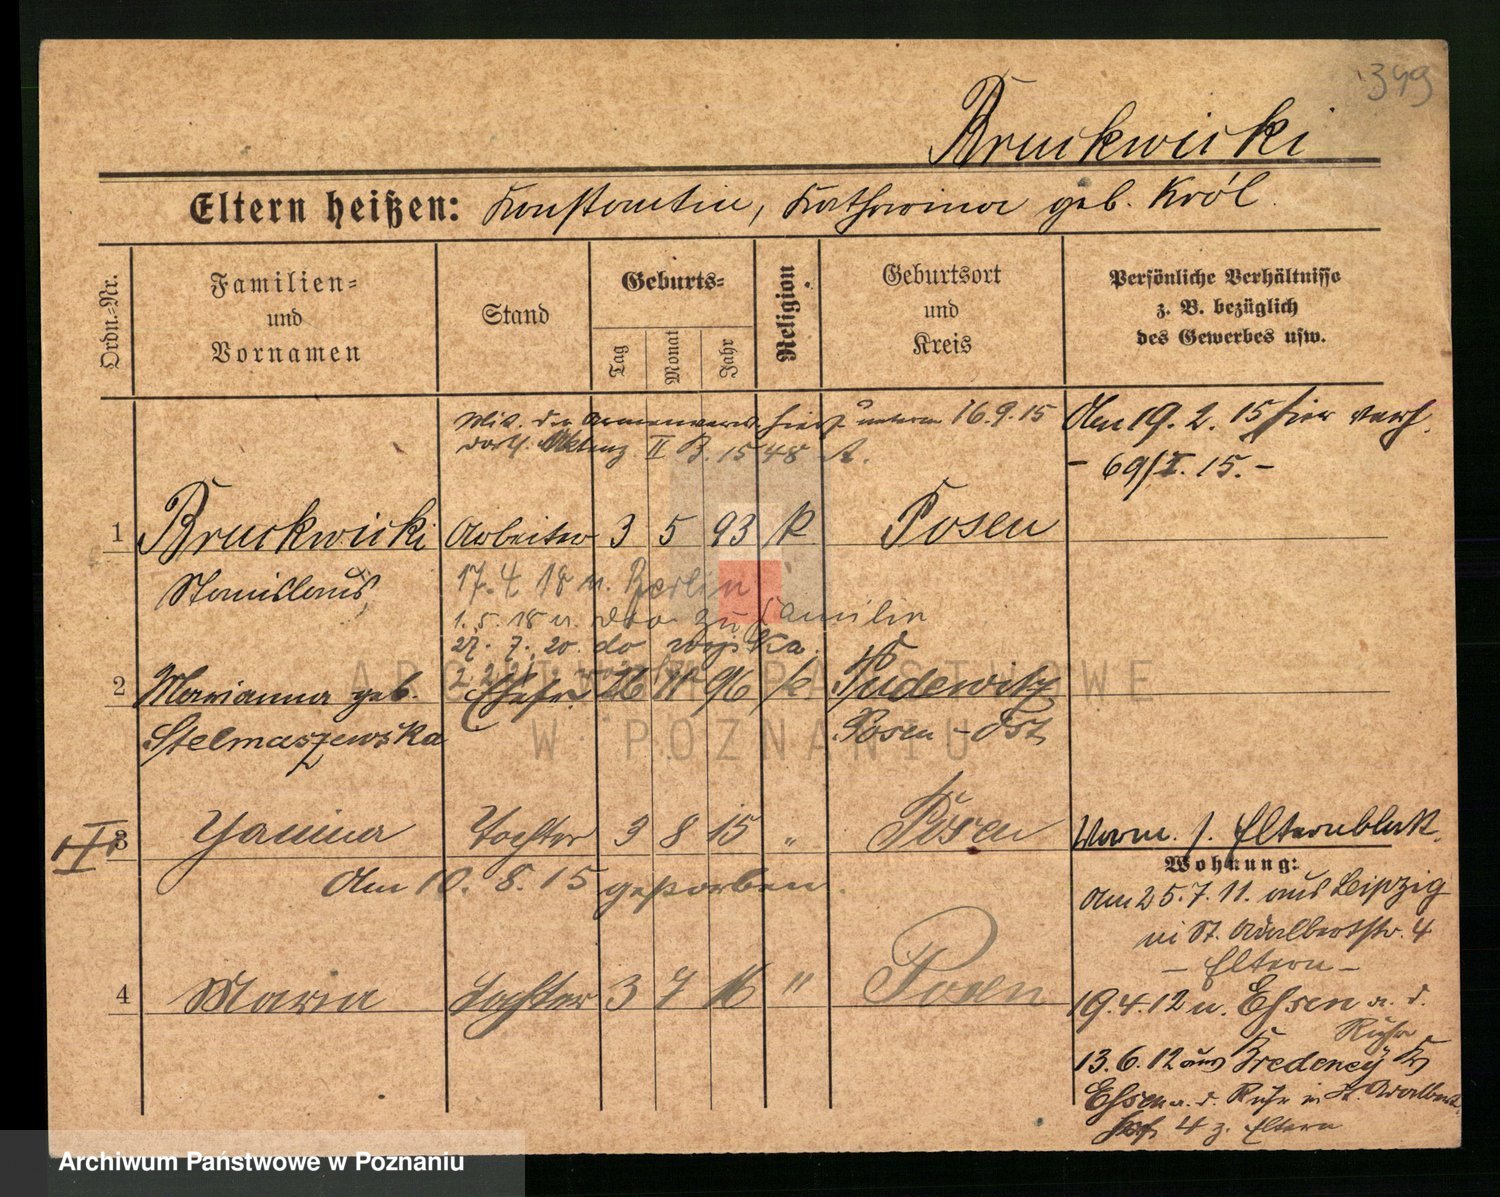 349
Bruckwicki
Eltern heißen: Konstantin, Katharina geb. Król.
Ordn.-Nr.
Familien- und Vornamen
Stand
Geburts-
Tag
Monat
Jahr
Religion
Geburtsort und Kreis
Persönliche Verhältnisse z. B. bezüglich des Gewerbes usw.
Mit. der hies. unterm 16.9.15
II B. 1548 A.
Am 19. 2. 15 hier verh.
- 69/I. 15. -
1 Bruckwicki Arbeiter 3 5 93 k. Posen
Stanislaus,
17. 4. 18 n. Berlin
1. 5. 18 v. zu Familie
27. 7. 20. do wojska.
2 Marianna geb. Ehefr. 26 11 96 k Pudewitz
Stelmaszewska Posen-Ost
3 Yanina Tochter 3 8 15 " Posen
Am 10. 8. 15 gestorben.
4 Maria Tochter 3 7 16 " Posen
Vorm. s. Elternblatt.
Wohnung:
Am 25. 7. 11. aus Leipzig
in St. Adalbertstr. 4
- Eltern -
19. 4. 12 n. Essen a. d.
Ruhr
13. 6. 12 aus Bredeney Kr
Essen a. d. Ruhr in St. Adalbert
4 z. Eltern
ARCHIWUM PAŃSTWOWE
W POZNANIU
Archiwum Państwowe w Poznaniu